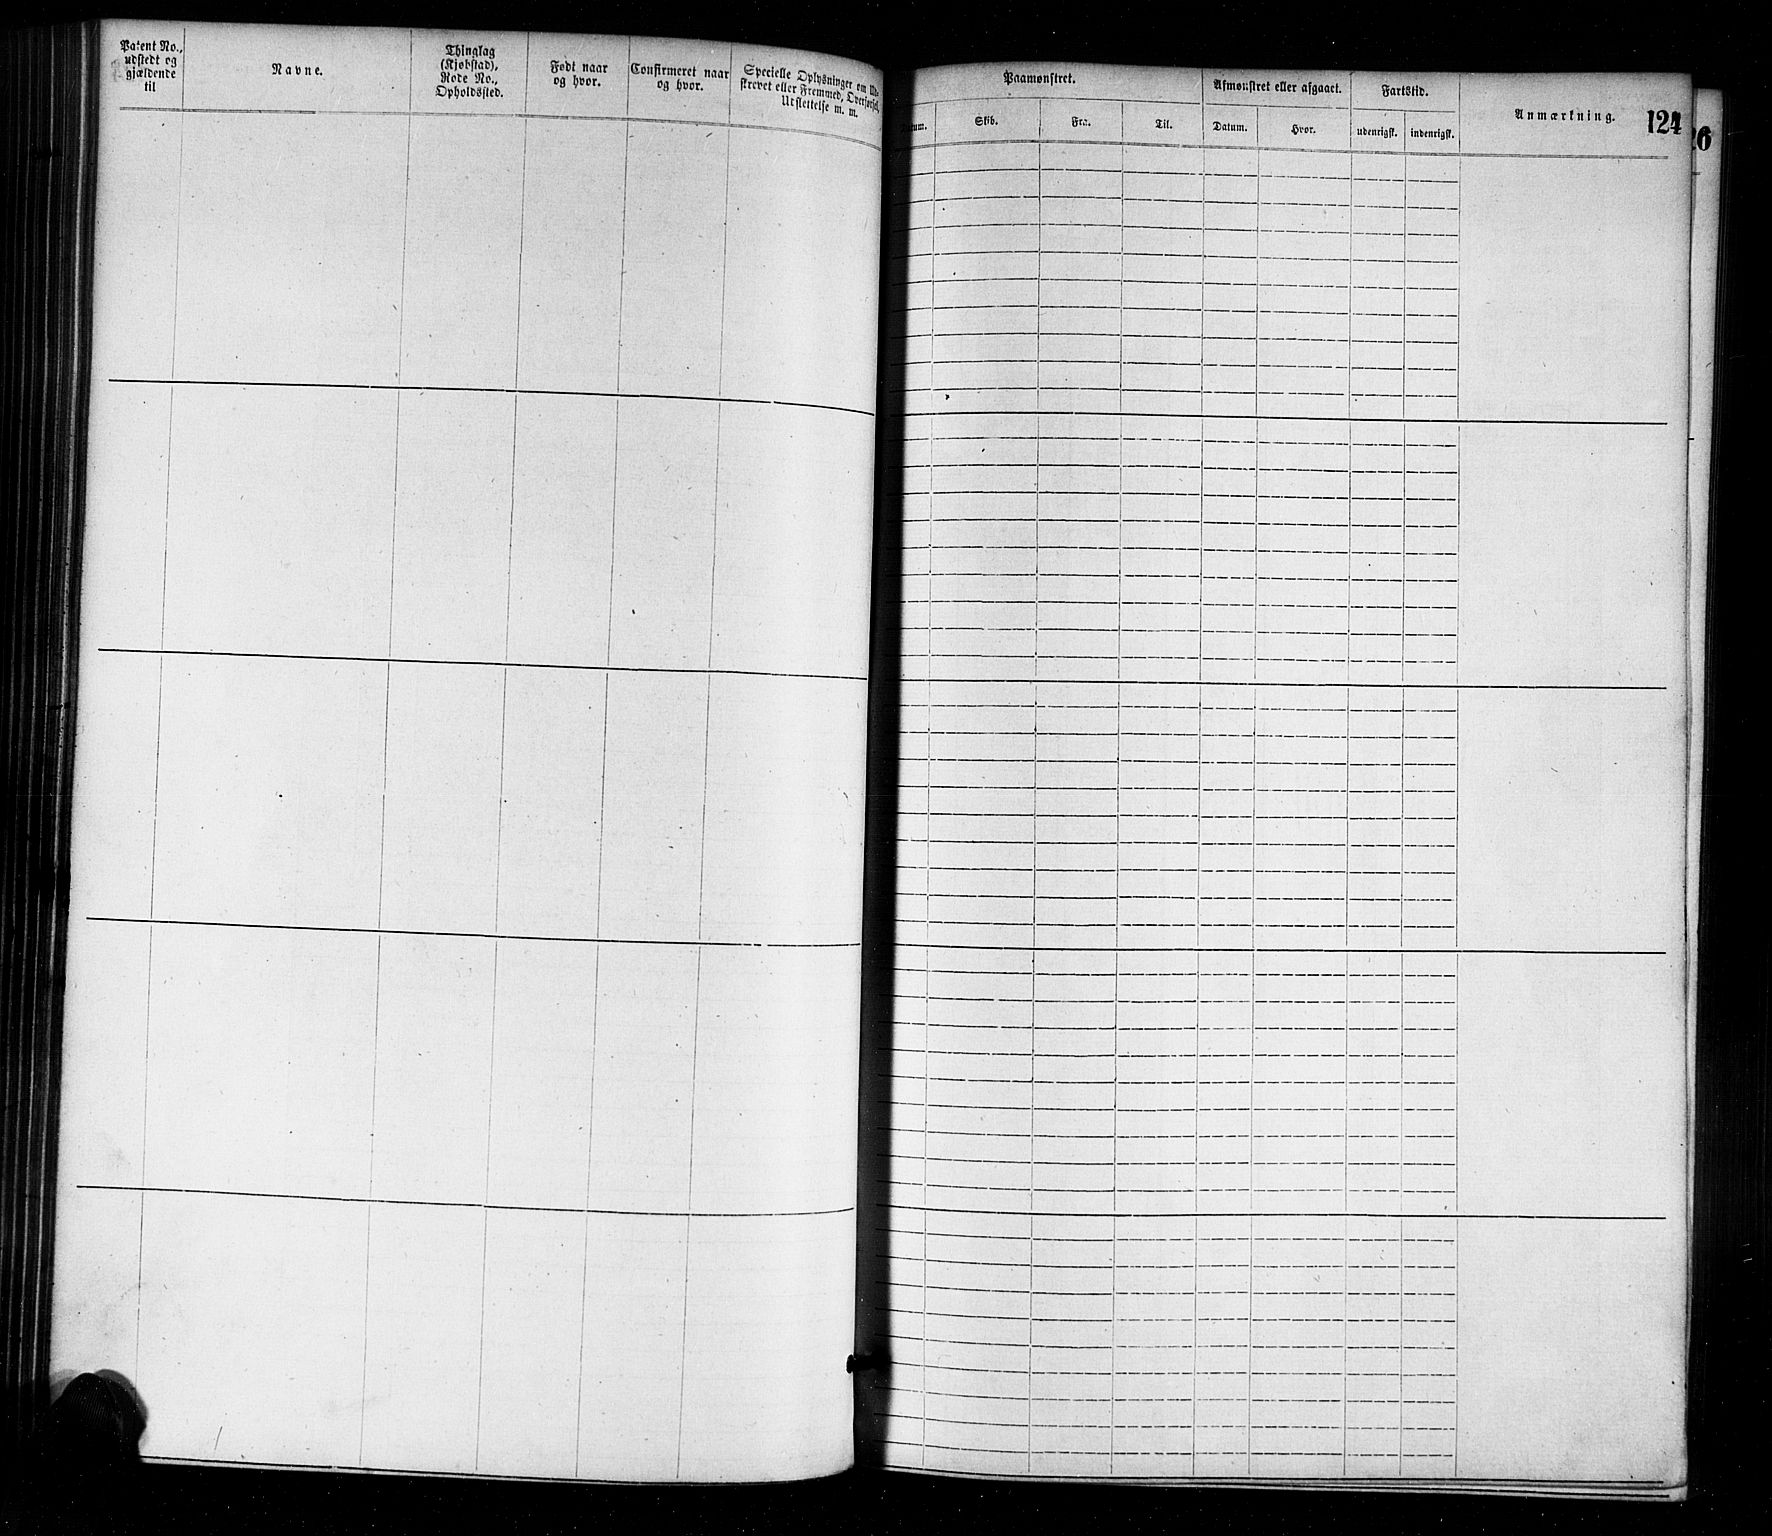 Patent No.,
udstedt og
gjældende
til
Navne.
Thinglag
(Kjøbstad),
Rode No.,
Opholdssted.
Født naar
og hvor.
Confirmeret naar
og hvor.
Specielle Oplysninger om Ud-
skrevet eller Fremmed, Overførsel,
Udslettelse m. m.
Paamønstret.
Afmønstret eller afgaaet.
Fartstid.
Anmærkning.
124
Skib.
Fra.
Til.
Datum.
Hvor.
udenrigsk.
indenrigsk.
26